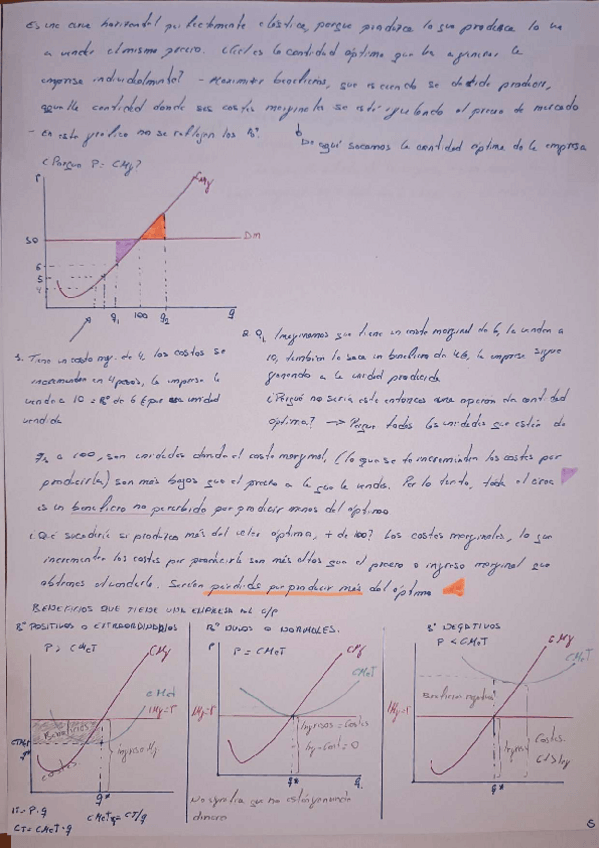 Es una curva horizontal perfectamente elástica, porque produzca lo que produzca lo va
a vender al mismo precio. ¿Cuál es la cantidad óptima que va a generar la
empresa individualmente? - Maximizar beneficios, que es cuando se decide producir,
aquella cantidad donde sus costes marginales se esté igualando al precio de mercado
- en este gráfico no se reflejan los Bº
De aquí sacamos la cantidad óptima de la empresa
¿Porque P = CMg?
P
CMg
DM
6
5
4
q1 100 q2 q
1. Tiene un costo mg. de 4, los costos se
incrementan en 4 pesos, la empresa lo
vende a 10 = Bº de 6 € por esa unidad
vendida
2. Q1 Imaginamos que tiene un coste marginal de 6, la venden a
10, también le saca un beneficio de 4€, la empresa sigue
ganando a la unidad producida
¿Porqué no sería este entonces una cantidad
óptima? → Porque todas las unidades que están de
q1 a 100, son unidades donde el coste marginal, (lo que se te incrementan los costes por
producirla) son más bajos que el precio a la que la vende. Por lo tanto, toda el área
es un beneficio no percibido por producir menos del óptimo
¿Qué sucedería si produzco más del valor óptimo, + de 100? Los costes marginales, lo que
incrementan los costes por producirla son más altos que el precio o ingreso marginal que
obtienes al venderla. Serían pérdidas por producir más del óptimo
BENEFICIOS QUE TIENE UNA EMPRESA en C/P
Bº POSITIVOS O EXTRAORDINARIOS
P > CMeT
CMg
CMeT
IMg=P
Beneficios
Ingreso
Costes
q*
IT = P·q
CT = CMeT·q
CMeT = CT/q
Bº NULOS O NORMALES.
P
P = CMeT
CMg
CMeT
IMg=P
Ingresos = Costes
Ing - Cost = 0
q*
q
No significa que no están ganando
dinero
Bº NEGATIVOS
P < CMeT
CMg
CMeT
Beneficios negativos
IMg=P
Ingreso
Costes
q*
5